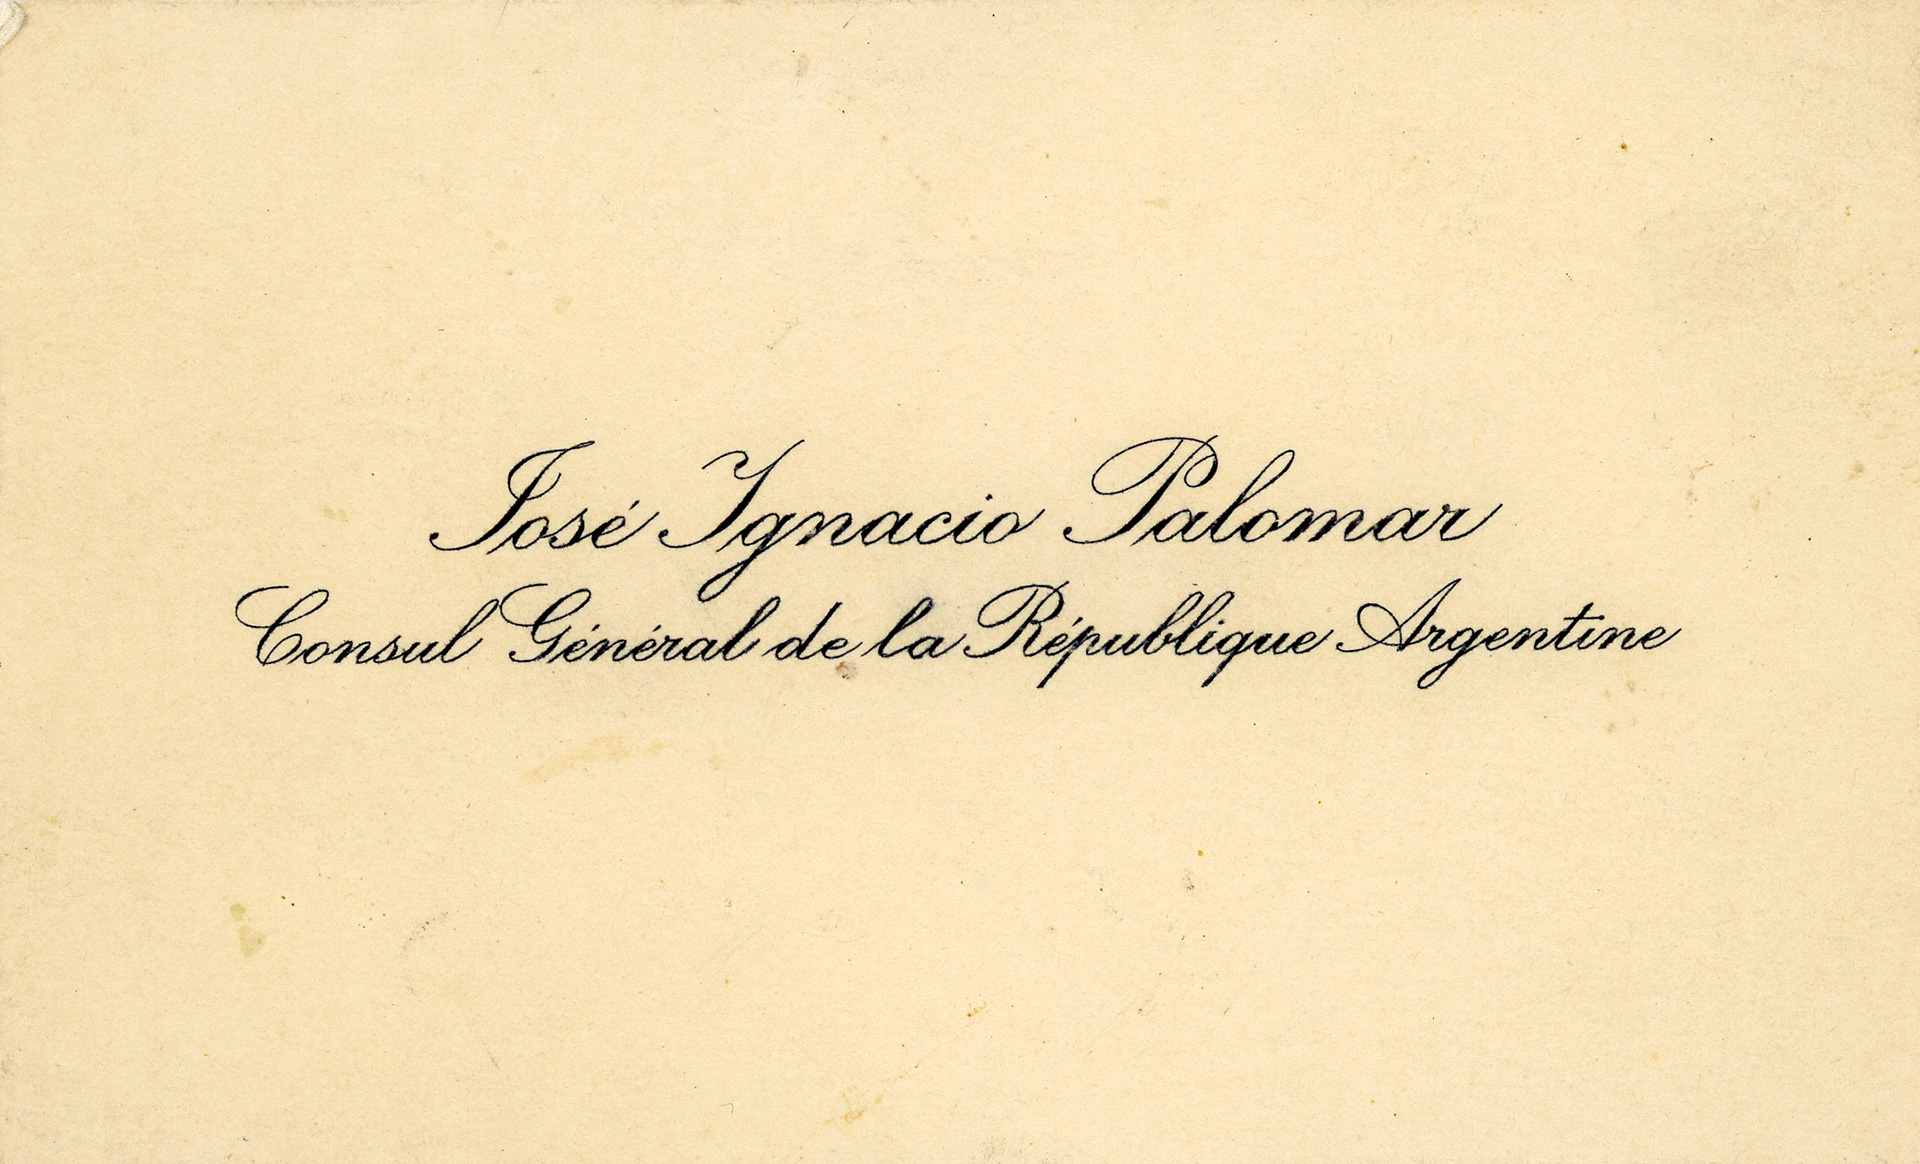 José Ignacio Palomar
Consul Général de la République Argentine